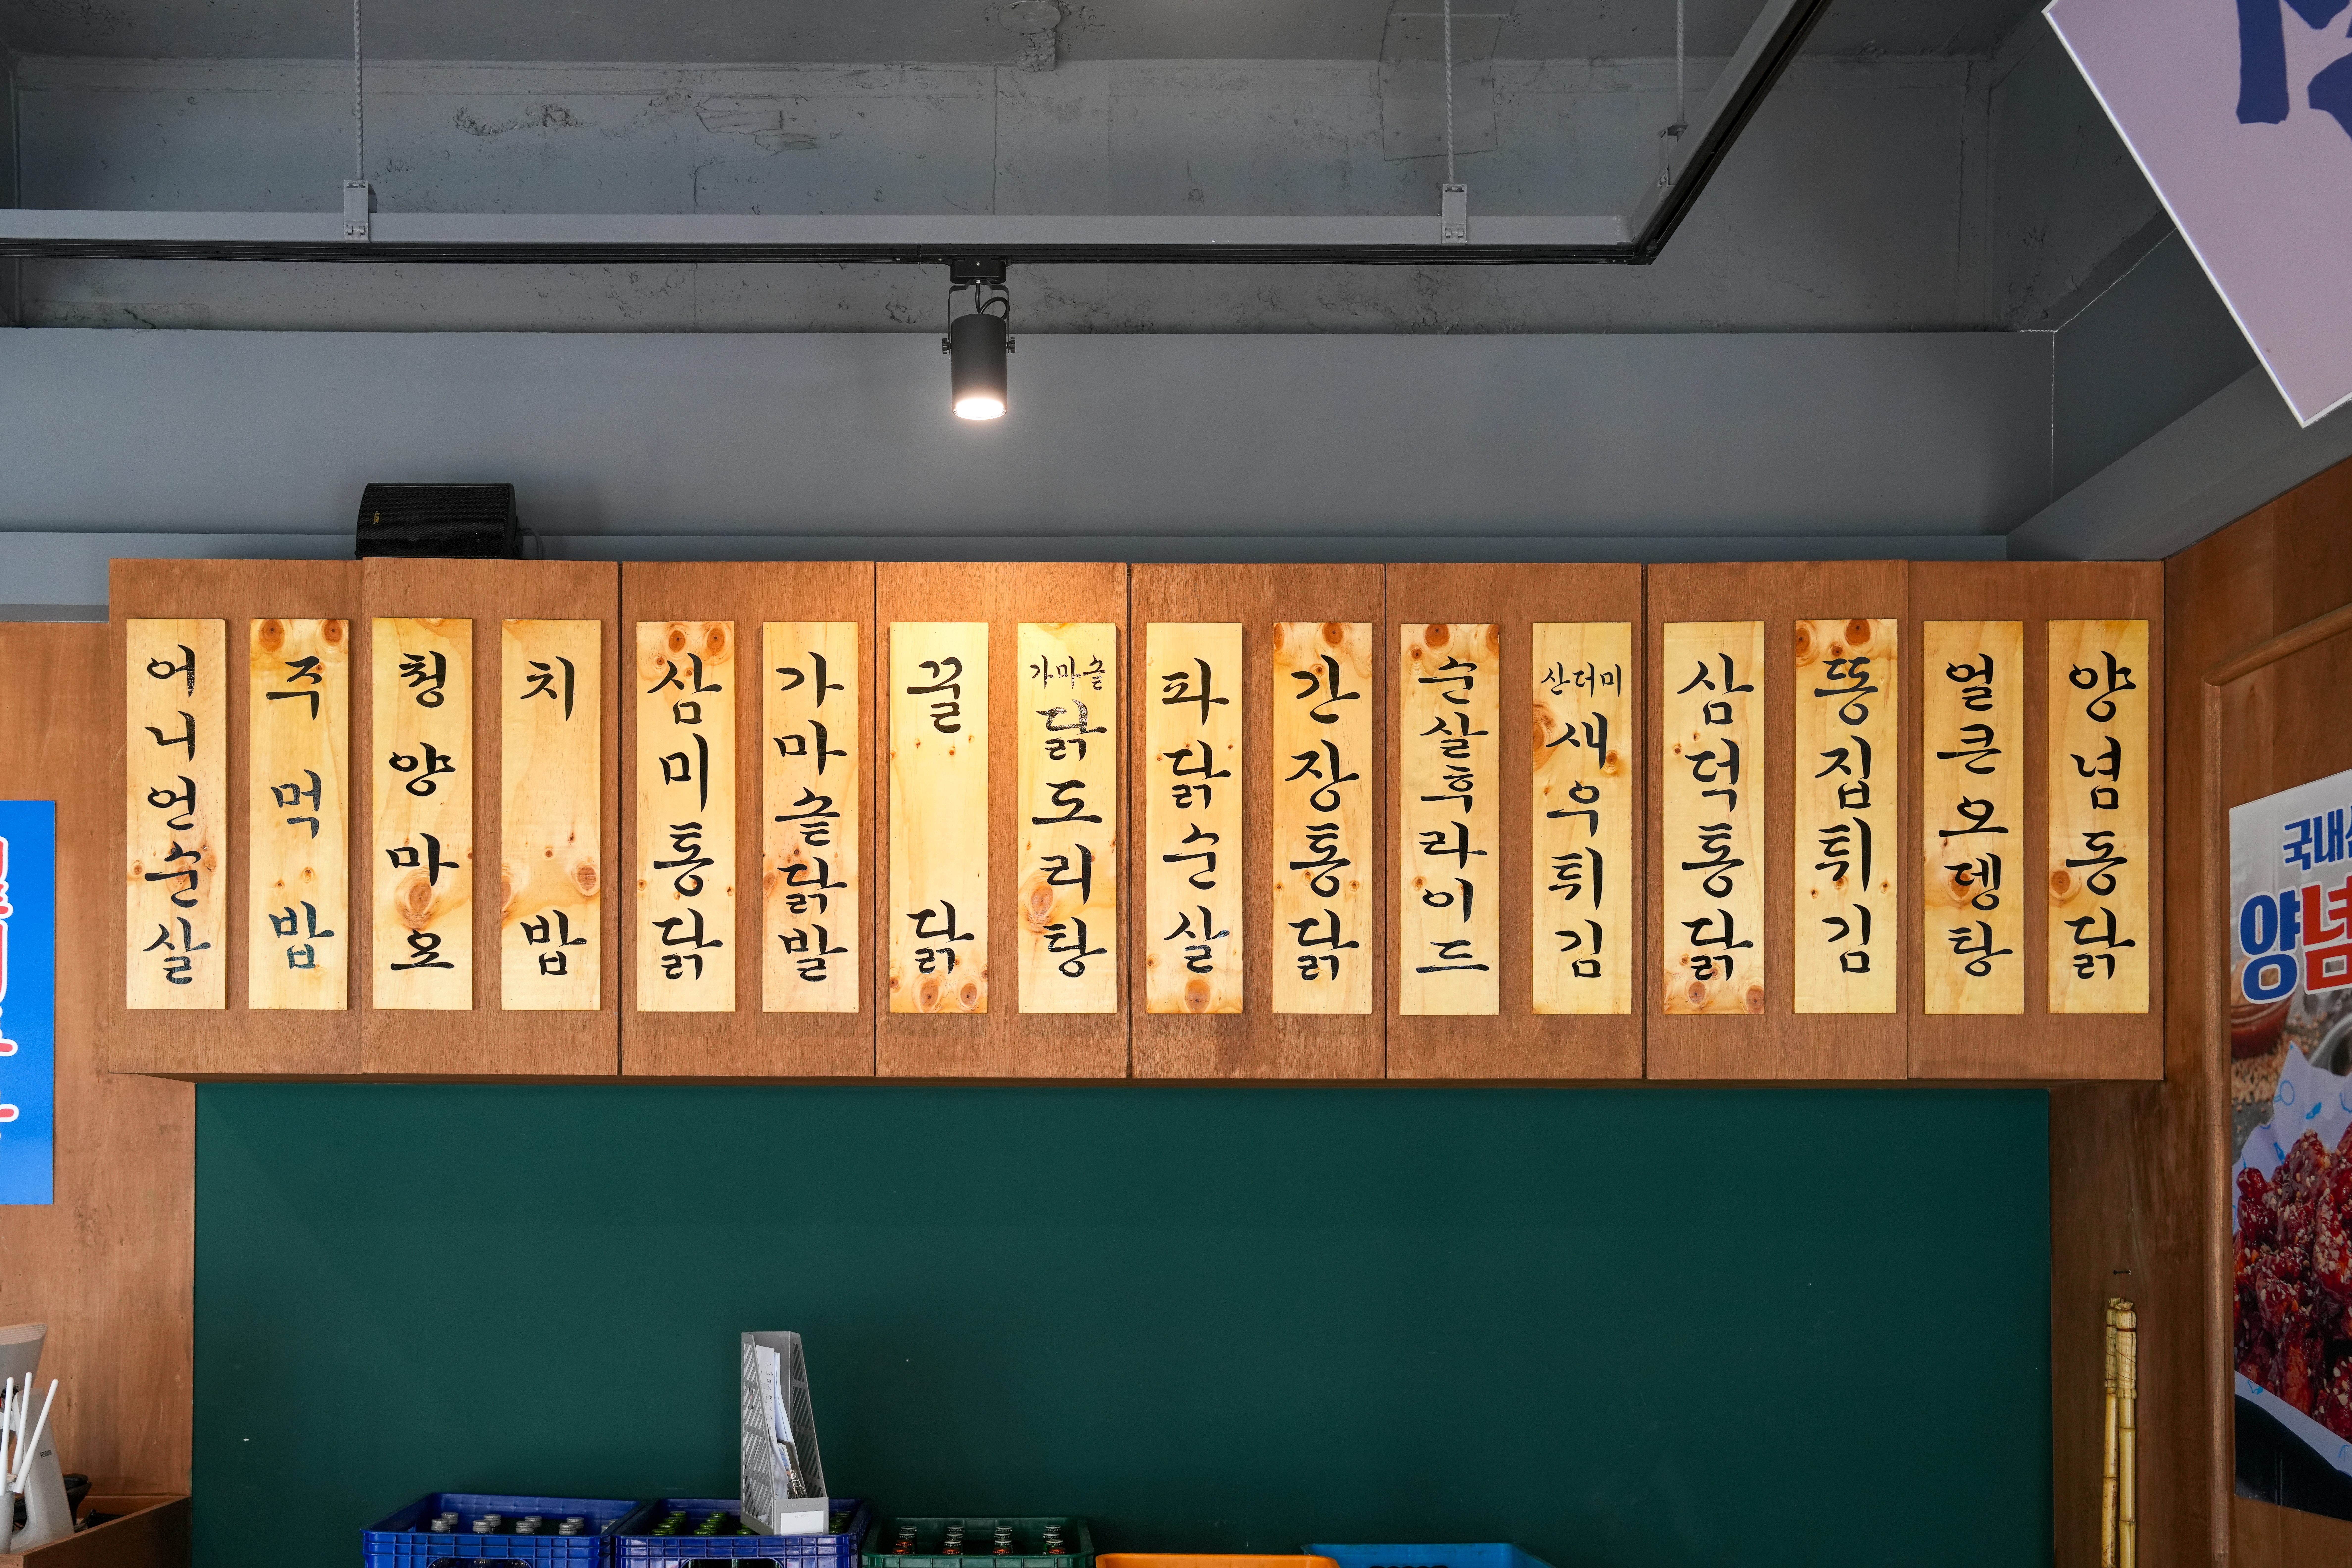 어니언순살
주먹밥
청양마요
치밥
삼미통닭
가마솥닭발
꿀닭
가마솥
닭도리탕
파닭순살
간장통닭
순살후라이드
산더미
새우튀김
삼덕통닭
똥집튀김
얼큰오뎅탕
양념통닭
국내